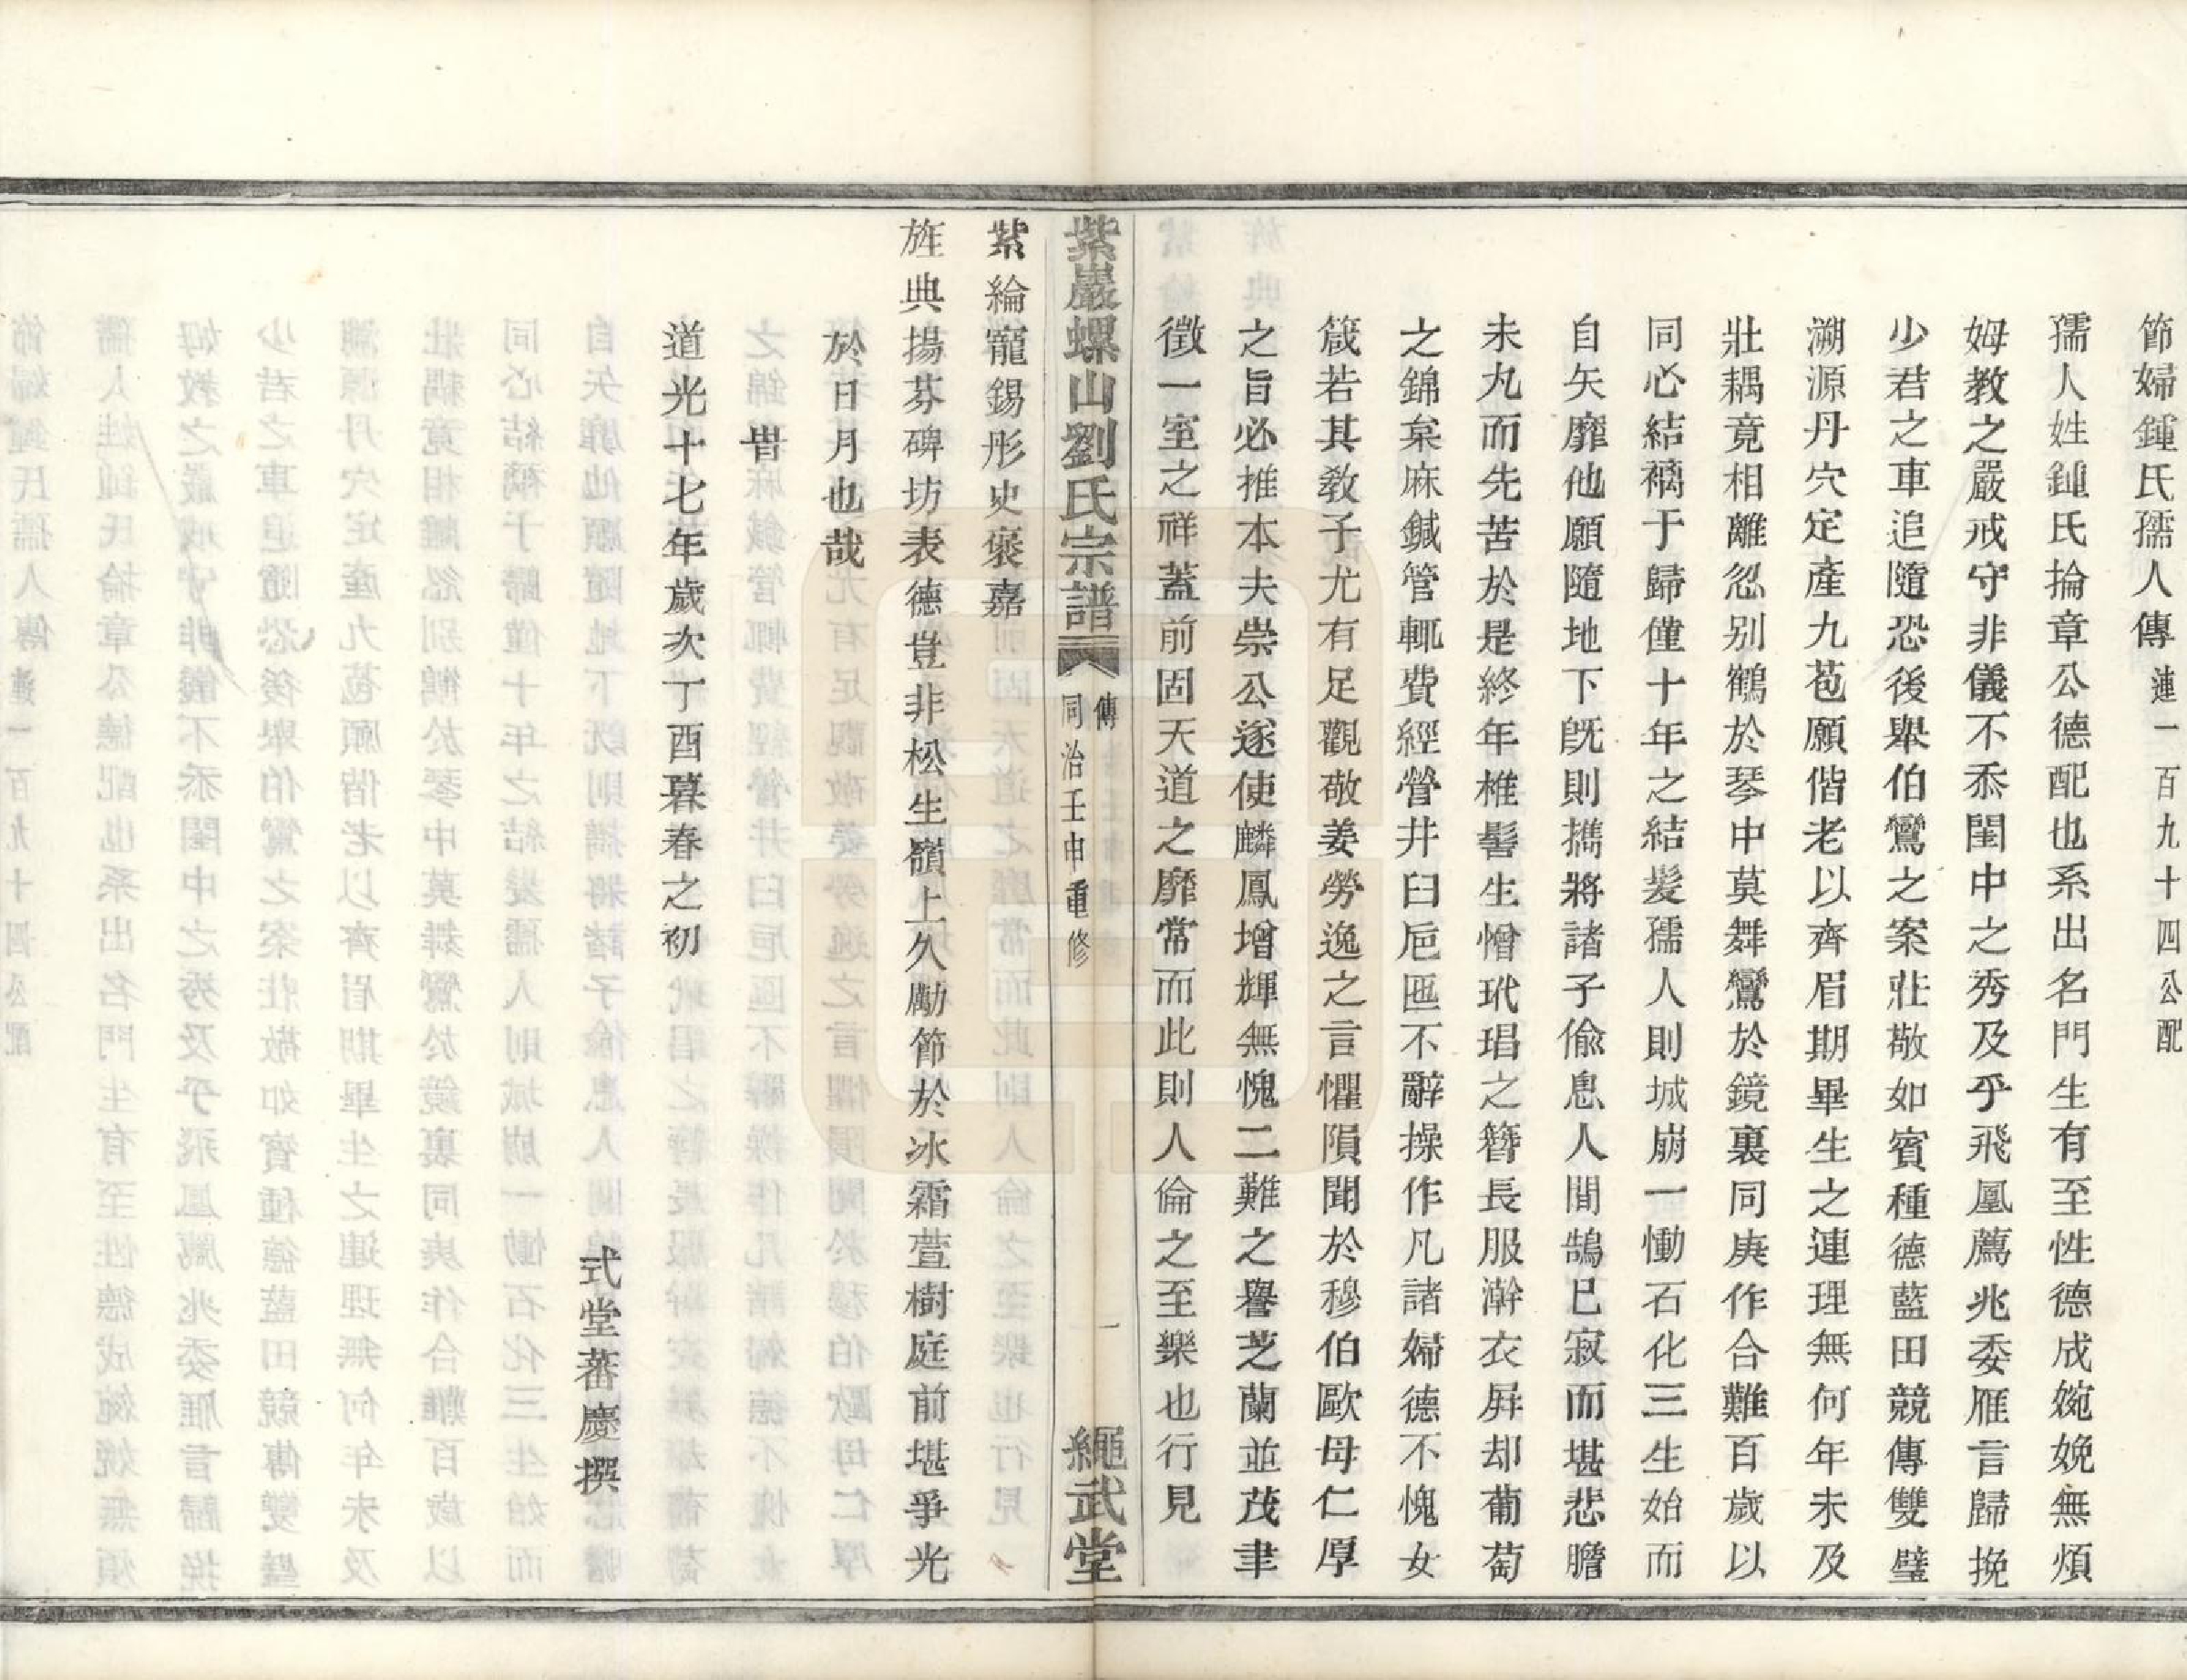 節婦鍾氏孺人傳連一百九十四公配
孺人姓鍾氏掄章公德配也系出名門生有至性德成婉娩無煩
姆教之嚴戒守非儀不忝閨中之秀及乎飛鳳薦兆委雁言歸挽
少君之車追隨恐後舉伯鸞之案莊敬如賓種德藍田競傳雙璧
溯源丹穴定產九苞願偕老以齊眉期畢生之連理無何年未及
壯耦竟相離忽别鶴於琴中莫舞鸞於鏡裏同庚作合難百歲以
同心結褵于歸僅十年之結髮孺人則城崩一慟石化三生始而
自矢靡他願隨地下旣則擕將諸子偷息人間鵠已寂而堪悲膽
未丸而先苦於是終年椎髻生憎玳瑁之簪長服澣衣屏却葡萄
之錦枲麻鍼管輒費經營井臼巵匜不辭操作凡諸婦德不愧女
箴若其敎子尤有足觀敬姜勞逸之言懼隕聞於穆伯歐母仁厚
之旨必推本夫崇公遂使麟鳳增輝無愧二難之譽芝蘭並茂聿
徵一室之祥蓋前固天道之靡常而此則人倫之至樂也行見
紫巖螺山劉氏宗譜 傳 同治壬申重修 一 繩武堂
紫綸寵錫彤史褒嘉
旌典揚芬碑坊表德豈非松生嶺上久勵節於冰霜萱樹庭前堪爭光
於日月也哉
旹
道光十七年歲次丁酉暮春之初
式堂蕃慶撰